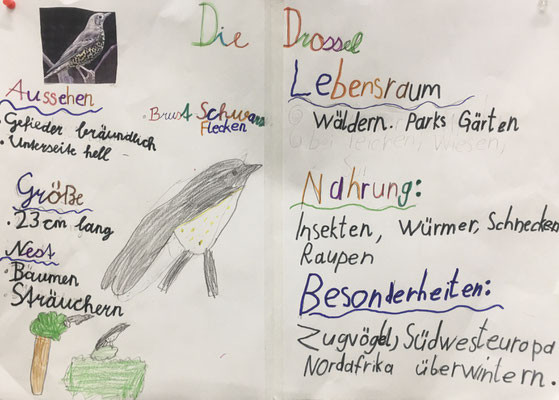 Die Drossel
Aussehen
• Gefieder bräundlich
• Unterseite hell
• Brust Schwarz
Flecken
Größe
• 23 cm lang
Nest
• Bäumen
• Sträuchern
Lebensraum
Wäldern. Parks Gärten
Nahrung:
Insekten, Würmer, Schnecken
Raupen
Besonderheiten:
Zugvögel, Südwesteuropa
Nordafrika überwintern.